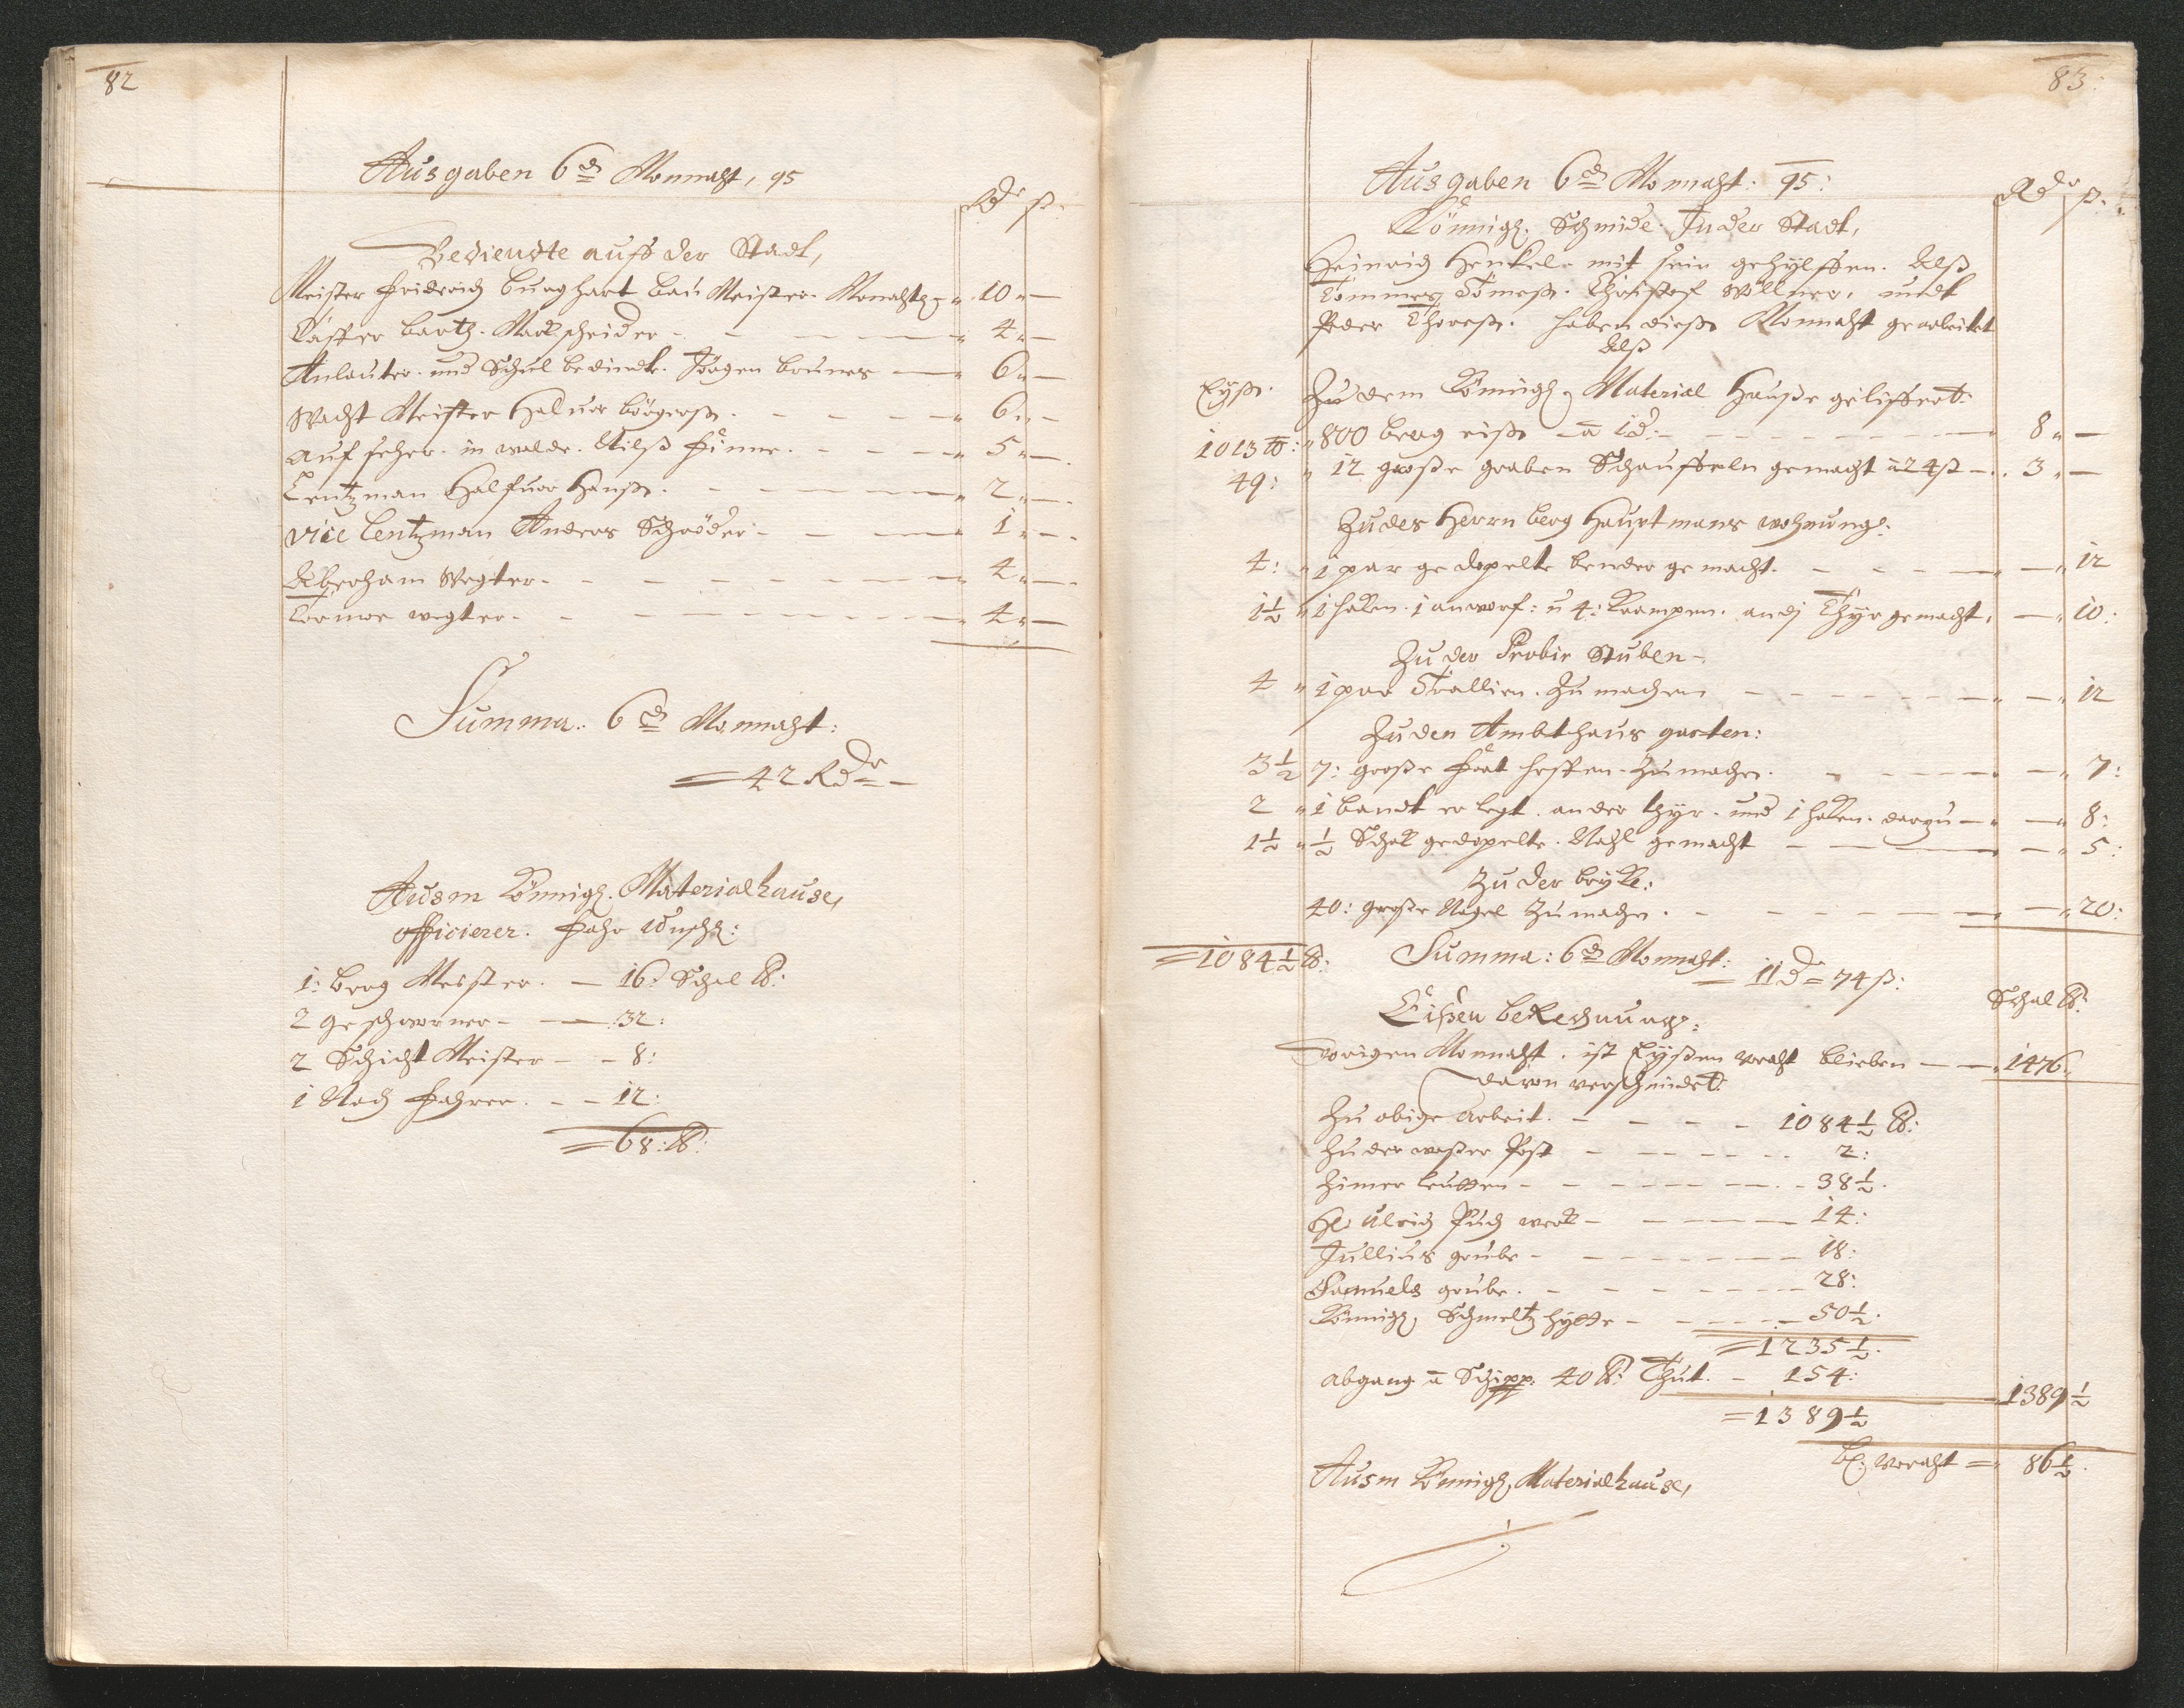 82
Ausgaben 6d Monnaht, 95
Rdr ß
Bediendte auff der Stadt,
Meister Friderich Burghart Bau Meister. Monahtg " 10 " —
Casper Bartz. Markscheider — " 4 " —
Anlauter. und Schul bedindt. Jörgen Brunes — " 6 " —
Wacht Meister Haluor Börgerß. — " 6 " —
Auf seher. in walde. Nilß Finne. — " 5 " —
Lentzman Halfuor Hanß. — " 2 " —
vice Lentzman Anders Schröder — " 1 " —
Abraham Wegter. — " 4 " —
Tormor wegter. — " 4 " —
Summa: 6d Monnaht:
= 42 Rdr = —
Ausm Königl. Materialhause,
officierer. Fahr
1: Berg Meister. — 16: Schal ℔:
2 geschworner — 32:
2 Schicht Meister — 8:
1 Nach Fahrer. — 12:
= 68: ℔:
83:
Ausgaben 6d Monnaht: 95:
Rdr ß.
Königl. Schmide. In der Stadt,
Heinrich Henkel. mit sein gehylffen. Alß
Tommes Tomeß. Christof Wöllner. undt
Peder Thoreß. haben dieße Monnaht gearbeitet
Alß
Eyß. Zu dem Königl. Material Hauße geliffert:
1013 ℔: " 800 berg eiße — a 1d: — 8 " —
49: " 12 große graben Schauffeln gemacht a 24ß — 3 " —
Zu des Herrn Berg Hauptmans wohnung:
4: " 1 par gedopelte bender gemacht. — — " 12
1½ " 1 haken. 1 anworf: u 4: krampen. an dj Thyr gemacht, — " 10:
Zu der Probir Stuben —
4 " 1 par Trallien. Zu machen — — " 12
Zu den Ambthaus garten:
3½ 7: große Fort heften. Zu machen. — — " 7:
2 " 1 bandt er legt. an der thyr. und 1 haken. darzu — — " 8:
1½ " ½ Schok gedopelte. Nahl gemacht — — " 5:
Zu der bryke:
40: große Nagel Zu machen. — — " 20:
= 1084½ ℔: Summa: 6d Monnaht:
= 11d = 74ß:
Eißen beRechnung:
Schal ℔:
Vorigen Monnaht. ist Eyßen Voraht blieben — " 1476 "
davon verschmidet:
Zu obige arbeit. — 1084½ ℔:
Zu der waßer Post — 2:
Zimer leutten — 38½.
Hl: Ulrich Puch werk — 14:
Jullius grube — 18:
Samuels grube. — 28:
Königl. Schmeltz hytte — 50½.
= 1235½.
abgang a Schipp: 40 ℔: Thut. — 154:
1389½
= 1389½
Bl: Voraht = " 86½.
Ausm Königl. Materialhause,